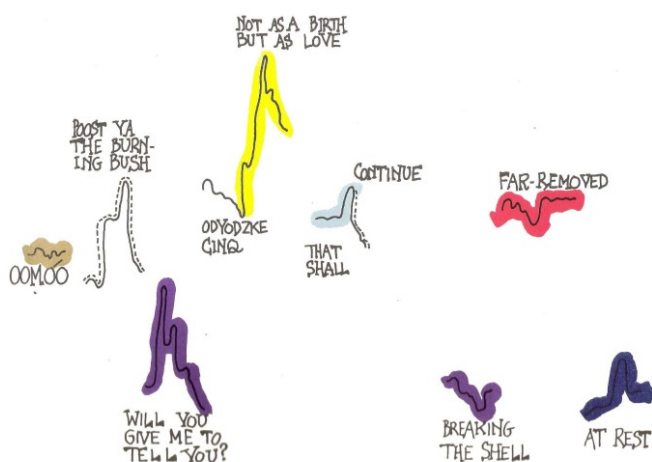 NOT AS A BIRTH
BUT AS LOVE
POOST YA
THE BURN-
ING BUSH
CONTINUE
FAR-REMOVED
ODYODZKE
GINQ
THAT
SHALL
OOMOO
WILL YOU
GIVE ME TO
TELL YOU?
BREAKING
THE SHELL
AT REST